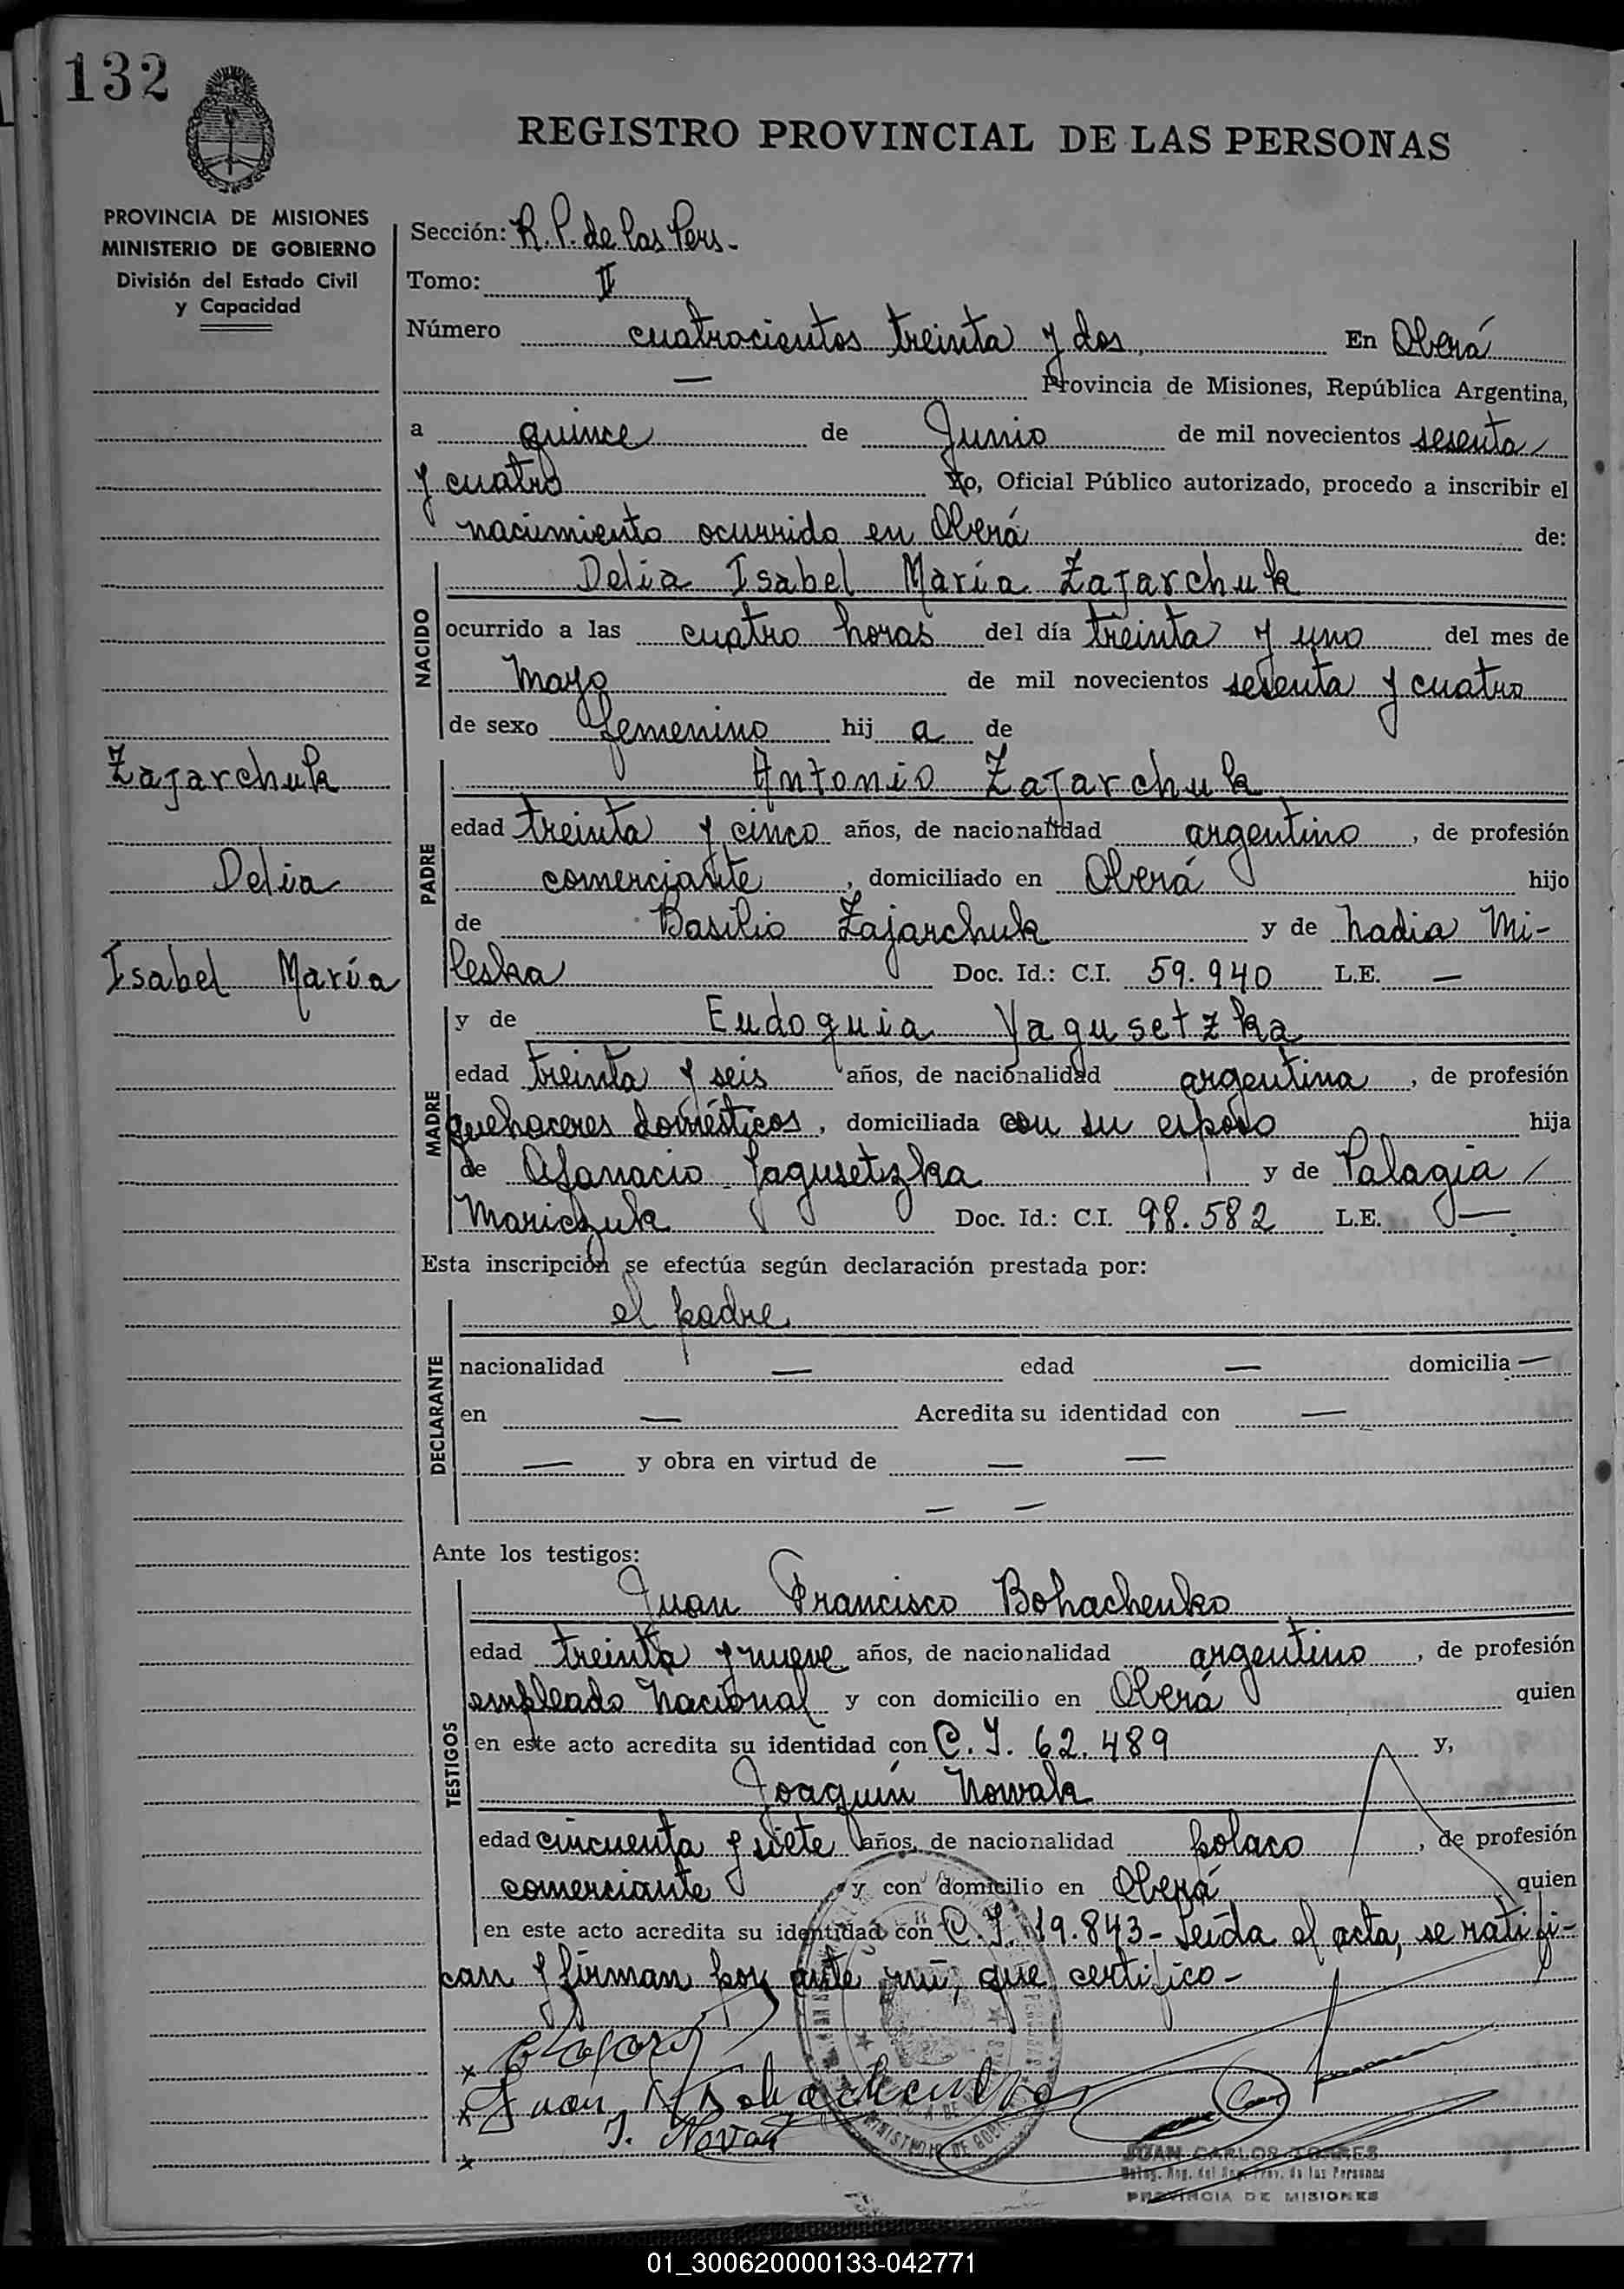 132
REGISTRO PROVINCIAL DE LAS PERSONAS
PROVINCIA DE MISIONES
MINISTERIO DE GOBIERNO
División del Estado Civil
y Capacidad
Sección: R. P. de las Pers-
Tomo: II
Número cuatrocientos treinta y dos En Oberá
— Provincia de Misiones, República Argentina,
a quince de Junio de mil novecientos sesenta
y cuatro Yo, Oficial Público autorizado, procedo a inscribir el
nacimiento ocurrido en Oberá de:
NACIDO
Delia Isabel María Zajarchuk
ocurrido a las cuatro horas del día treinta y uno del mes de
Mayo de mil novecientos sesenta y cuatro
de sexo femenino hij a de
Zajarchuk
Delia
Isabel María
PADRE
Antonio Zajarchuk
edad treinta y cinco años, de nacionalidad argentino, de profesión
comerciante, domiciliado en Oberá hijo
de Basilio Zajarchuk y de Nadia Mi-
leska Doc. Id.: C.I. 59.940 L.E. —
MADRE
y de Eudoquia Yagusetzka
edad treinta y seis años, de nacionalidad argentina, de profesión
quehaceres domésticos, domiciliada con su esposo hija
de Afanacio Jagusetzka y de Palagia
Mariczuk Doc. Id.: C.I. 98.582 L.E. —
Esta inscripción se efectúa según declaración prestada por:
DECLARANTE
el padre
nacionalidad — edad — domicilia —
en — Acredita su identidad con —
— y obra en virtud de — —
— —
Ante los testigos:
TESTIGOS
Juan Francisco Bohachenko
edad treinta y nueve años, de nacionalidad argentino, de profesión
empleado Nacional y con domicilio en Oberá quien
en este acto acredita su identidad con C. I. 62.489 y,
Joaquín Nowak
edad cincuenta y siete años, de nacionalidad polaco, de profesión
comerciante y con domicilio en Oberá quien
en este acto acredita su identidad con C. I. 19.843- Leída el acta, se ratifi-
can y firman por ante mí, que certifico-
x
x Juan F Bohachenko
x J. Novak
JUAN CARLOS TORRES
PROVINCIA DE MISIONES
01_300620000133-042771